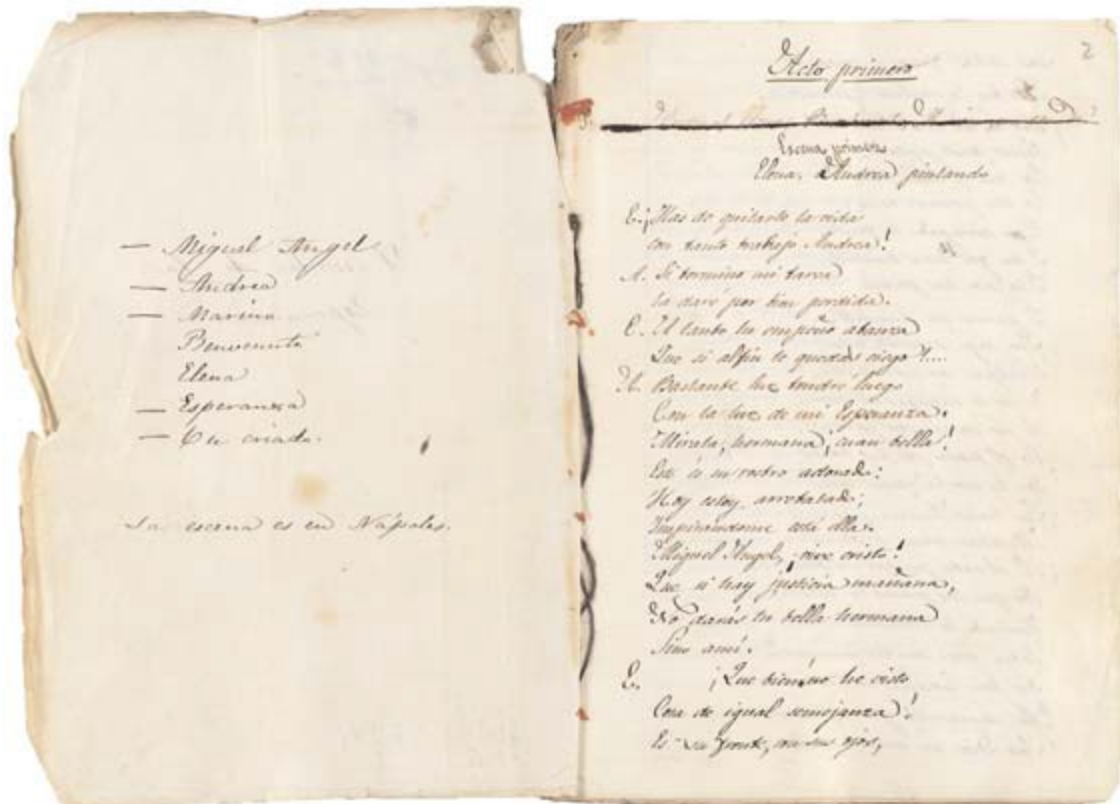 — Miguel Angel
— Andrea
— Marina
Benvenuto
Elena
— Esperanza
— Un criado.
La escena es en Nápoles.
2
Acto primero
Escena primera.
Elena. Andrea pintando
E. ¡Has de quitarte la vida
con tanto trabajo Andrea!
A. Si termino mi tarea
la daré por bien perdida.
E. Y tanto tu empeño alcanza
Que si al fin te quedas ciego?....
A. Bastante luz tendré luego
Con la luz de mi Esperanza.
Mírala, hermana, ¡cuan bella!
Este es su rostro adorado:
Hoy estoy arrebatado;
Inspirándome está ella.
Miguel Angel, ¡vive cristo!
Que si hay justicia mañana,
No darás tu bella hermana
Sino a mí.
E. ¡Que bien! no he visto
Cosa de igual semejanza!
Es su frente, son sus ojos,